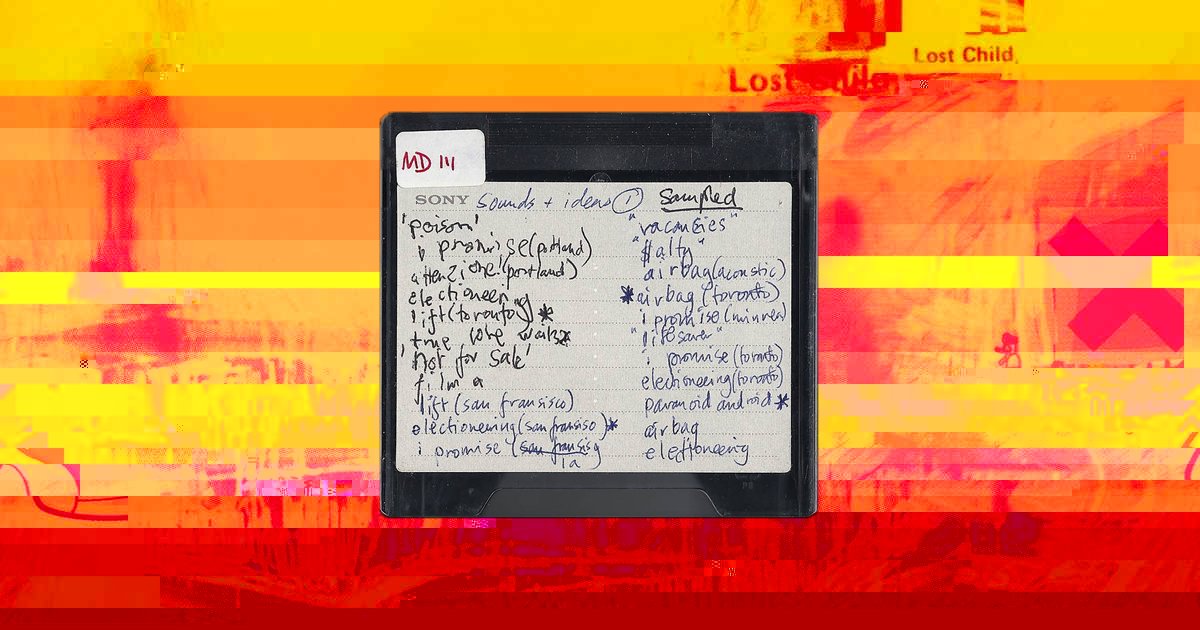 Lost Child
Lost Child
MD 111
SONY Sounds + ideas ① Sampled
'poison'
i promise (portland)
attenzione! (portland)
electioneering
lift (toronto) *
true love waits *
'Not for Sale'
i'm a
lift (san fransisco)
electioneering (san fransiso) *
i promise (san fransis
la
"vacancies"
"
airbag (acoustic)
* airbag (toronto)
i promise (
"lifesaver"
i promise (toronto)
electioneering (toronto)
paranoid android *
airbag
electioneering